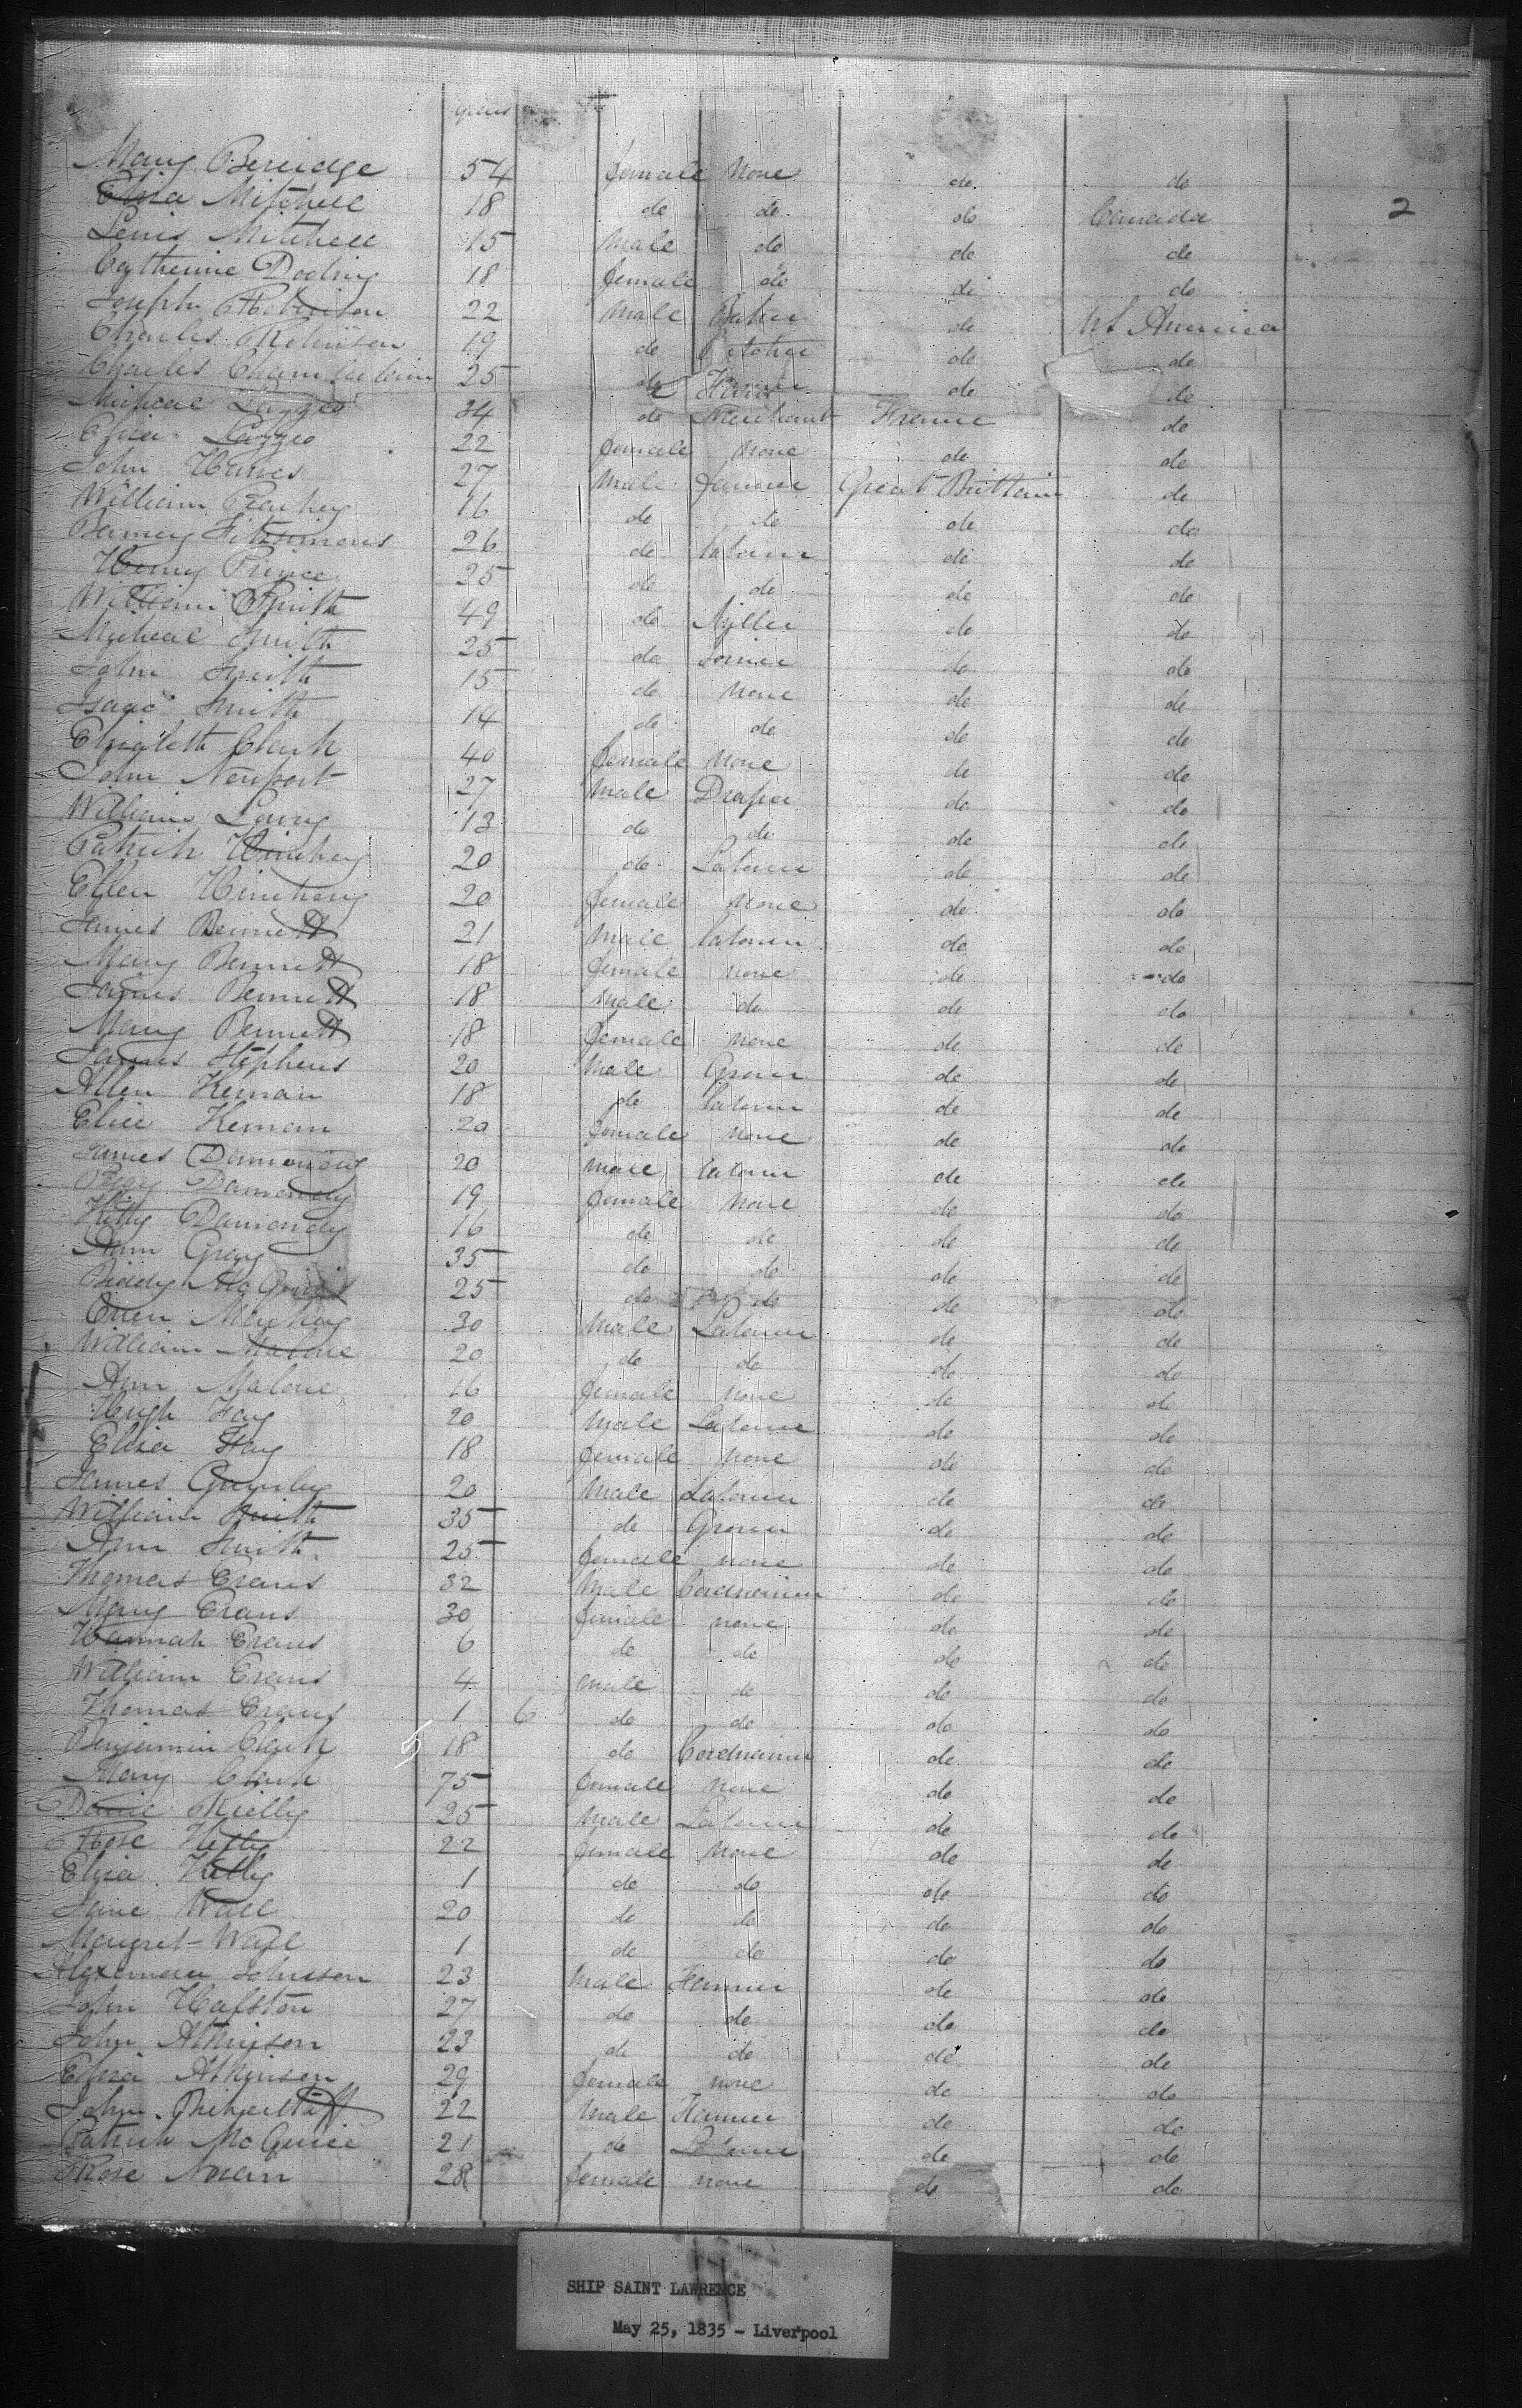 years
Mary Berridge 54 female None do do
Eliza Mitchell 18 do do do Canada 2
Lewis Mitchell 15 Male do do do
Catherine Dooling 18 female do do do
Joseph Robinson 22 Male Baker do U S America
Charles Robinson 19 do Butcher do do
Charles Chamberlain 25 do Farmer do do
Micheal 24 do Merchant France do
Eliza 22 female None do do
John Harves 27 Male farmer Great Brittain do
William 16 do do do do
Barney Fitzsimons 26 do labourer do do
Henry Prince 35 do do do do
William Smith 49 do Miller do do
Micheal Smith 25 do Joiner do do
John Smith 15 do None do do
Isaac Smith 14 do do do do
Elizabeth Clark 40 female None do do
John Newport 27 Male Draper do do
William Lowry 13 do do do do
Patrick 20 do Labourer do do
Ellen 20 female None do do
James Bennett 21 Male labourer do do
Mary Bennett 18 female none do do
James Bennett 18 Male do do do
Mary Bennett 18 female none do do
James Stephens 20 Male Grocer do do
Allen Kernan 18 do labourer do do
Elice Kernan 20 female none do do
James Damondy 20 Male labourer do do
Damondy 19 female None do do
Kitty Damondy 16 do do do do
Ann Gray 35 do do do do
Biddy 25 do do do do
Owen 30 Male Labourer do do
William Malone 20 do do do do
Ann Malone 16 female none do do
Hugh Fay 20 Male Labourer do do
Eliza Fay 18 female None do do
James 20 Male Labourer do do
William Smith 35 do Grocer do do
Ann Smith 25 female none do do
Thomas Evans 32 Male Cordwainer do do
Mary Evans 30 female none do do
Hannah Evans 6 do do do do
William Evans 4 male do do do
Thomas Evans 1 6 do do do do
Benjamin Clark 18 do Cordwainer do do
Mary Clark 75 female None do do
Kielly 25 Male Labourer do do
Rose Kelly 22 female None do do
Eliza Kelly 1 do do do do
Jane Wall 20 do do do do
Margret Wall 1 do do do do
Alexander Johnson 23 Male Farmer do do
John Halston 27 do do do do
John Atkinson 23 do do do do
Eliza Atkinson 29 female none do do
John 22 Male Farmer do do
Patrick McGuire 21 do Labourer do do
Rose 28 female none do do
SHIP SAINT LAWRENCE
May 25, 1835 - Liverpool